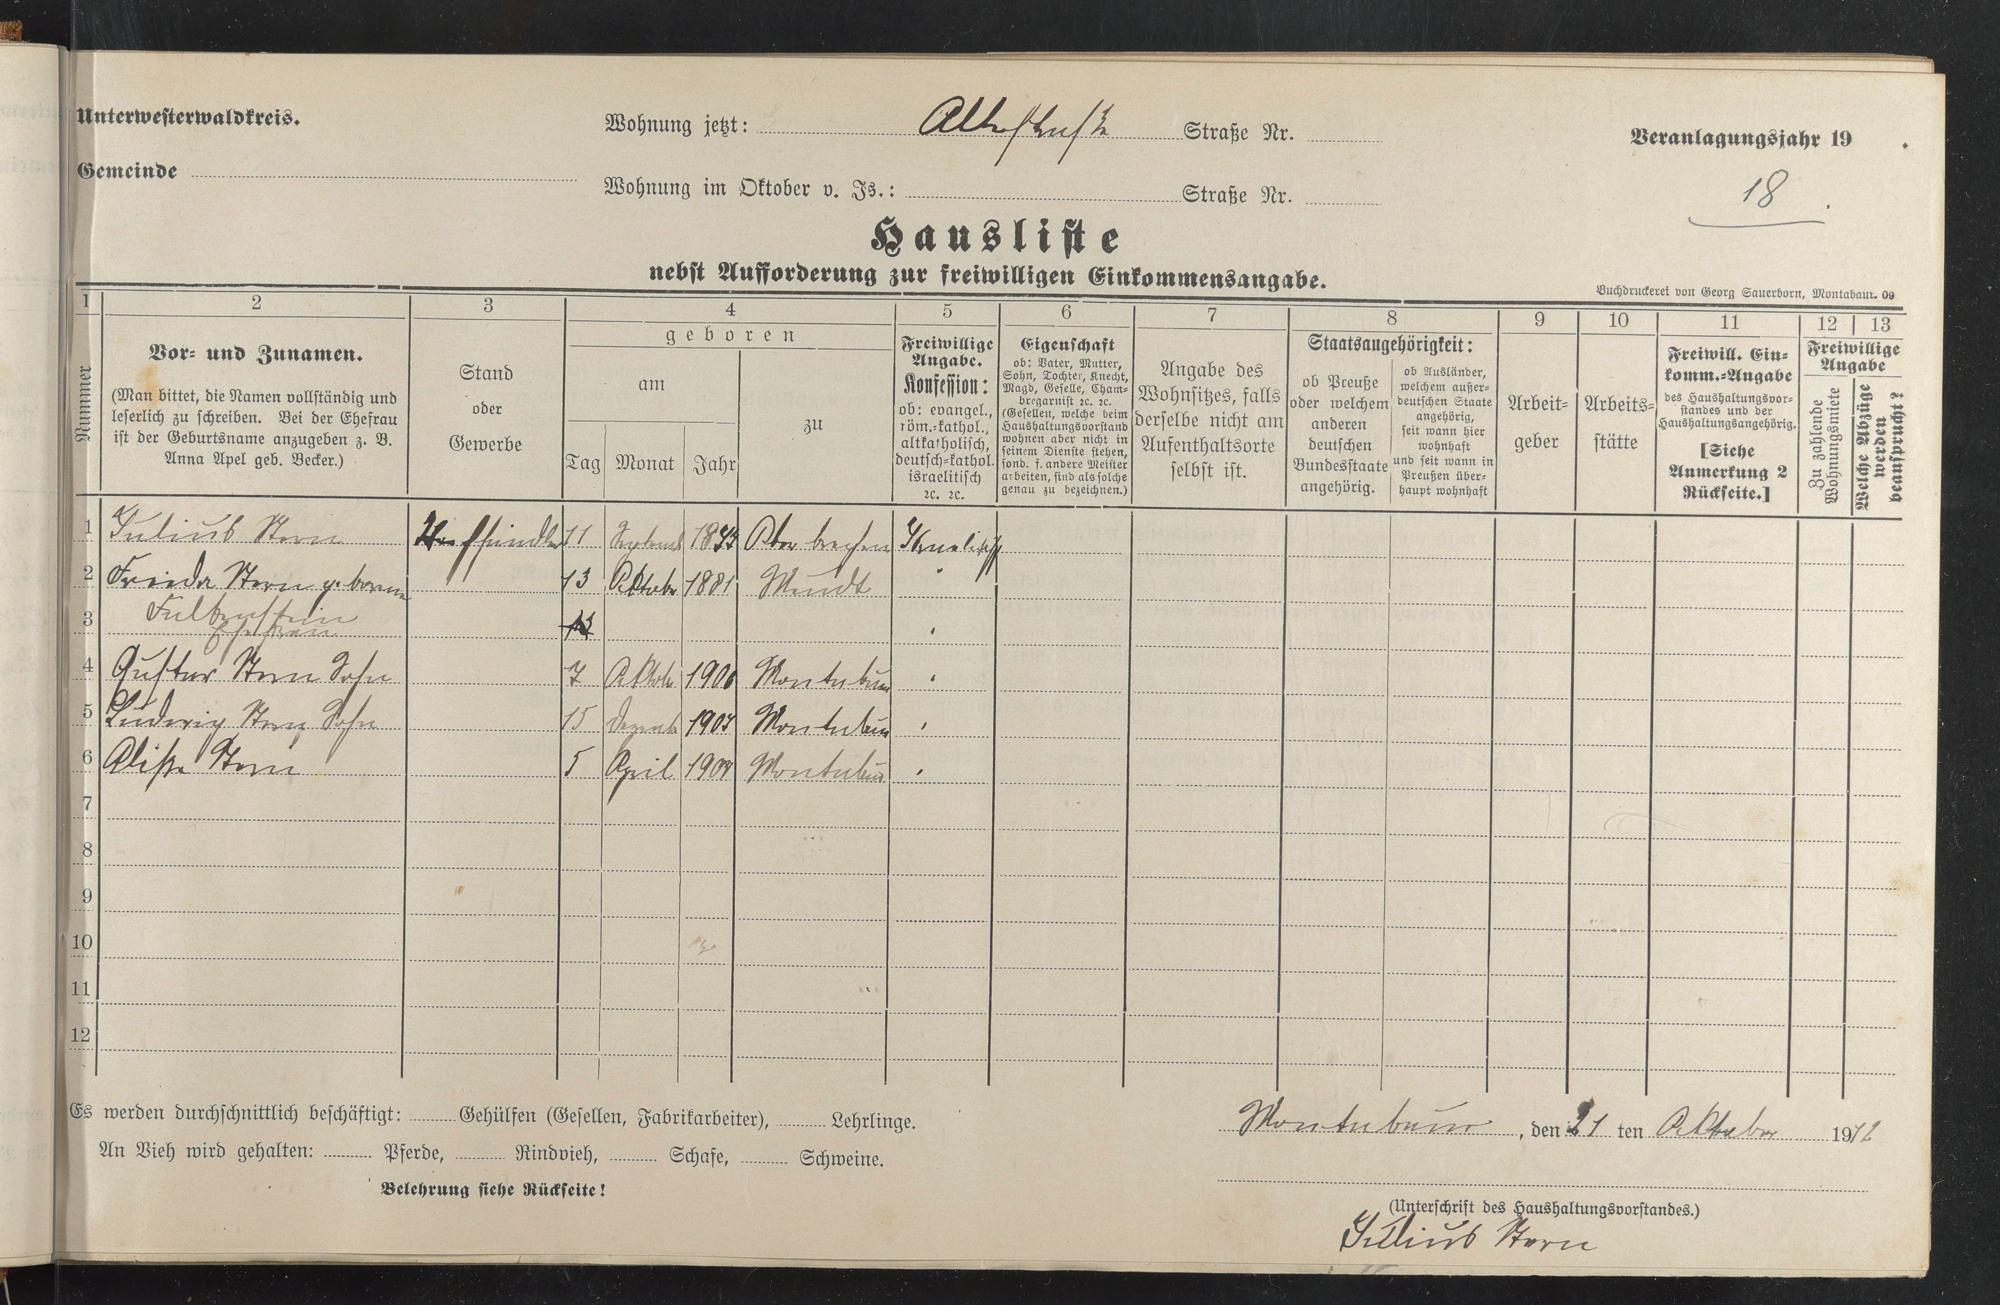 Unterwesterwaldkreis.
Gemeinde
Wohnung jetzt: Straße Nr.
Wohnung im Oktober v. Js.: Straße Nr.
Veranlagungsjahr 19 .
18
Hausliste
nebst Aufforderung zur freiwilligen Einkommensangabe.
Buchdruckerei von Georg Sauerborn, Montabaur. 09
1 2 3 4 5 6 7 8 9 10 11 12 13
Nummer
Vor- und Zunamen.
(Man bittet, die Namen vollständig und
leserlich zu schreiben. Bei der Ehefrau
ist der Geburtsname anzugeben z. B.
Anna Apel geb. Becker.)
Stand
oder
Gewerbe
geboren
am
Tag Monat Jahr
zu
Freiwillige
Angabe.
Konfession:
ob: evangel.,
röm.-kathol.,
altkatholisch,
deutsch-kathol.
israelitisch
ꝛc. ꝛc.
Eigenschaft
ob: Vater, Mutter,
Sohn, Tochter, Knecht,
Magd, Geselle, Cham-
bregarnist ꝛc. ꝛc.
(Gesellen, welche beim
Haushaltungsvorstand
wohnen aber nicht in
seinem Dienste stehen,
sond. f. andere Meister
arbeiten, sind als solche
genau zu bezeichnen.)
Angabe des
Wohnsitzes, falls
derselbe nicht am
Aufenthaltsorte
selbst ist.
Staatsangehörigkeit:
ob Preuße
oder welchem
anderen
deutschen
Bundesstaate
angehörig.
ob Ausländer,
welchem außer-
deutschen Staate
angehörig,
seit wann hier
wohnhaft
und seit wann in
Preußen über-
haupt wohnhaft
Arbeit-
geber
Arbeits-
stätte
Freiwill. Ein-
komm.-Angabe
des Haushaltungsvor-
standes und der
Haushaltungsangehörig.
[Siehe
Anmerkung 2
Rückseite.]
Freiwillige
Angabe
Zu zahlende
Wohnungsmiete
Welche Abzüge
werden
beansprucht?
1 Julius Stern 11 September Israelitisch
2 Frieda Stern geborene 13 Oktober 1881 "
3 Falkenstein
Ehefrau "
4 Gustav Stern Sohn 7 Oktober 1906 Montabaur "
5 Ludwig Stern Sohn 15 Dezember 1907 Montabaur "
6 Stern 5 April 1909 Montabaur "
7
8
9
10
11
12
Es werden durchschnittlich beschäftigt: Gehülfen (Gesellen, Fabrikarbeiter), Lehrlinge.
An Vieh wird gehalten: Pferde, Rindvieh, Schafe, Schweine.
Belehrung siehe Rückseite!
Montabaur, den 21 ten Oktober 1912
(Unterschrift des Haushaltungsvorstandes.)
Julius Stern